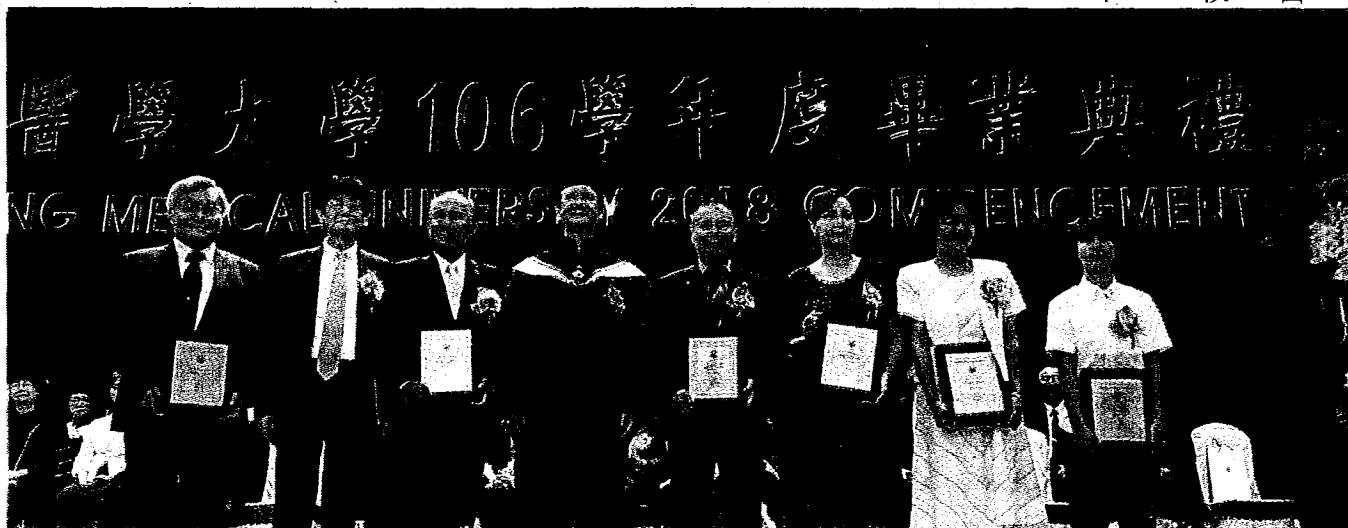 醫學大學106學年度畢業典禮
NG MEDICAL UNIVERSITY 2018 COMMENCEMENT